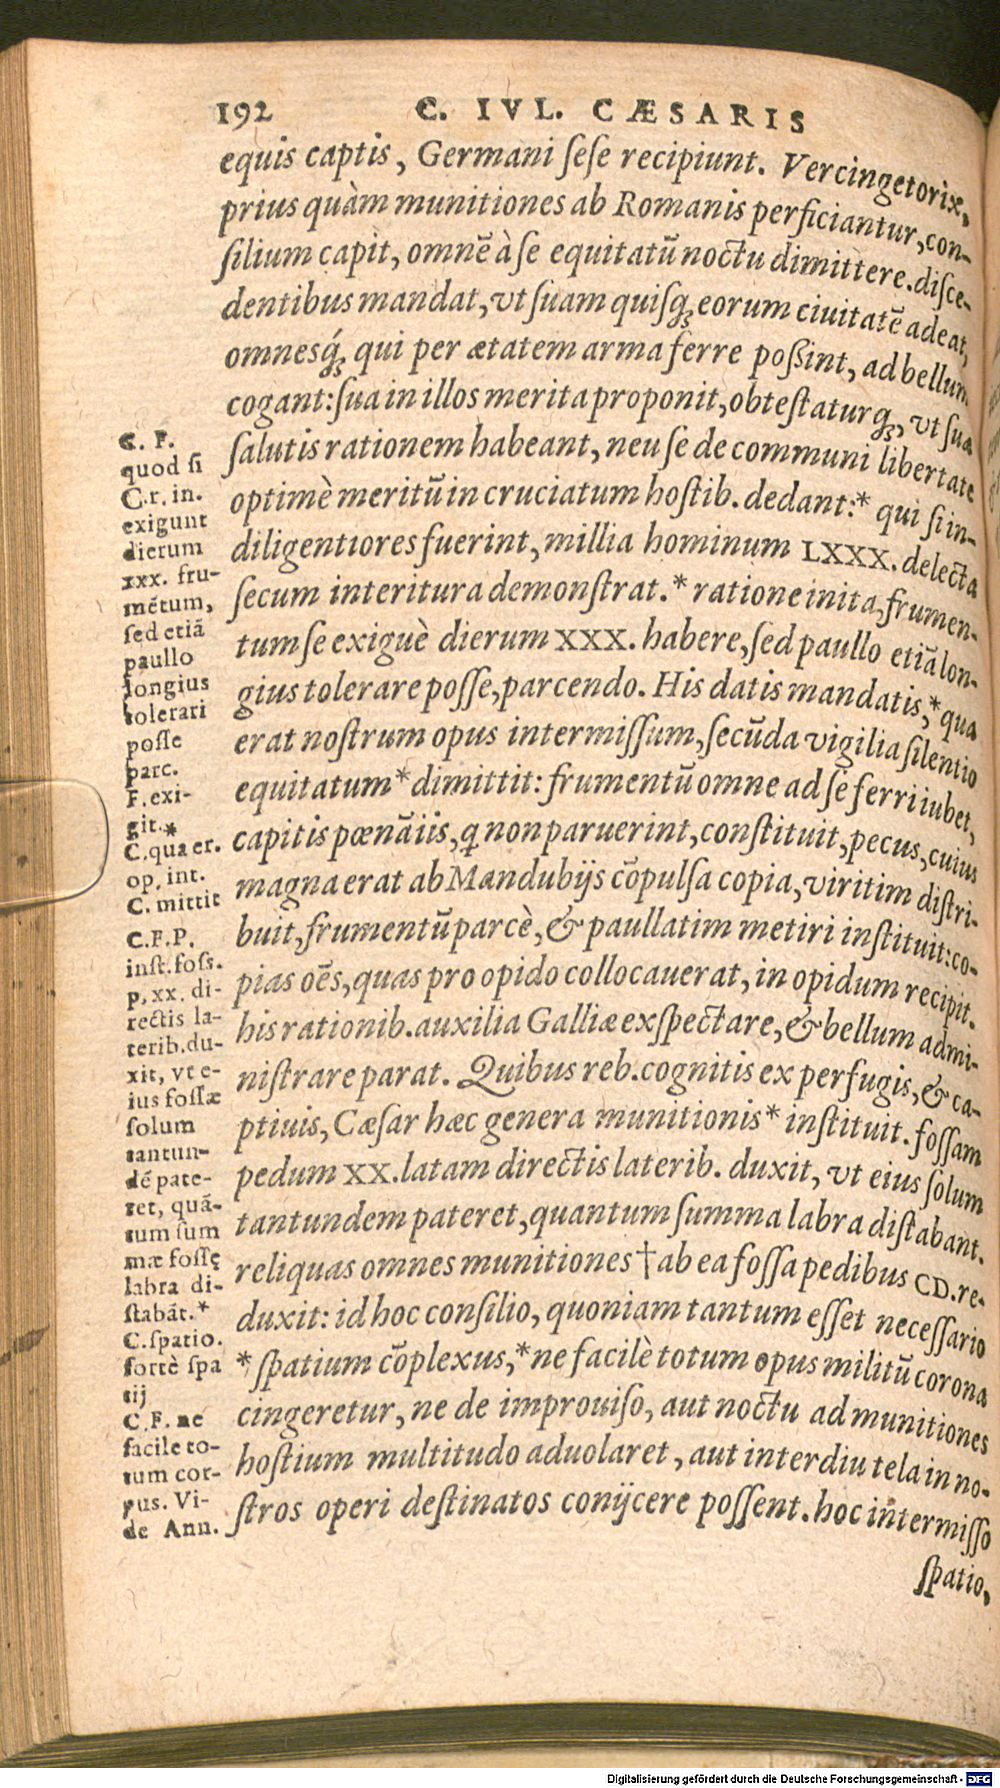 192 C. IVL. CÆSARIS
equis captis, Germani ſeſe recipiunt. Vercingetorix,
prius quàm munitiones ab Romanis perficiantur, con-
ſilium capit, omnē à ſe equitatū noctu dimittere. diſce-
dentibus mandat, vt ſuam quiſq́; eorum ciuitatē adeat,
omnesq́; qui per ætatem arma ferre poßint, ad bellum
cogant: ſua in illos merita proponit, obteſtaturq́;, vt ſuæ
ſalutis rationem habeant, neu ſe de communi libertate
optimè meritū in cruciatum hoſtib. dedant:* qui ſi in-
diligentiores fuerint, millia hominum LXXX. delecta
ſecum interitura demonſtrat.* ratione inita, frumen-
tum ſe exiguè dierum XXX. habere, ſed paullo etiā lon-
gius tolerare poſſe, parcendo. His datis mandatis,* qua
erat noſtrum opus intermiſſum, ſecūda vigilia ſilentio
equitatum* dimittit: frumentū omne ad ſe ferri iubet,
capitis pœnā iis, q non paruerint, conſtituit, pecus, cuius
magna erat ab Mandubijs cōpulſa copia, viritim diſtri-
buit, frumentū parcè, & paullatim metiri inſtituit: co-
pias oēs, quas pro opido collocauerat, in opidum recipit.
his rationib. auxilia Galliæ exſpectare, & bellum admi-
niſtrare parat. Quibus reb. cognitis ex perfugis, & ca-
ptiuis, Cæſar hæc genera munitionis* inſtituit. foſſam
pedum XX. latam directis laterib. duxit, vt eius ſolum
tantundem pateret, quantum ſumma labra diſtabant.
reliquas omnes munitiones † ab ea foſſa pedibus CD. re-
duxit: id hoc conſilio, quoniam tantum eſſet neceſſario
* ſpatium cōplexus,* ne facilè totum opus militū corona
cingeretur, ne de improuiſo, aut noctu ad munitiones
hoſtium multitudo aduolaret, aut interdiu tela in no-
ſtros operi deſtinatos conijcere poſſent. hoc intermiſſo
ſpatio,
C. F.
quod ſi
C.r. in.
exigunt
dierum
xxx. fru-
mētum,
ſed etiā
paullo
longius
tolerari
poſſe
parc.
F. exi-
git.*
C.qua er.
op. int.
C. mittit
C.F.P.
inſt. foſs.
p. xx. di-
rectis la-
terib.du-
xit, vt e-
ius foſſæ
ſolum
tantun-
dē pate-
ret, quā-
tum ſum
mæ foſſę
labra di-
ſtabāt.*
C.ſpatio.
fortè ſpa
tij
C. F. ne
facile to-
tum cor-
pus. Vi-
de Ann.
Digitalisierung gefördert durch die Deutsche Forschungsgemeinschaft - DFG